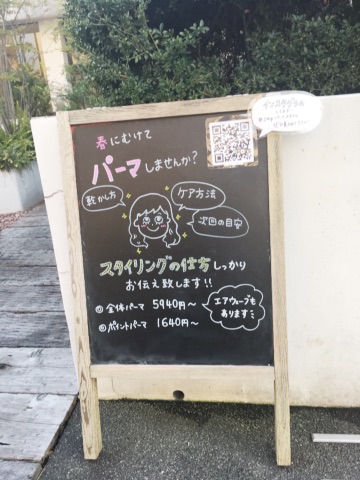 春にむけて
パーマしませんか?
インスタグラム
乾かし方
ケア方法
次回の目安
スタイリングの仕方しっかり
お伝え致します!!
◎全体パーマ 5940円〜
◎ポイントパーマ 1640円〜
エアウェーブも
あります